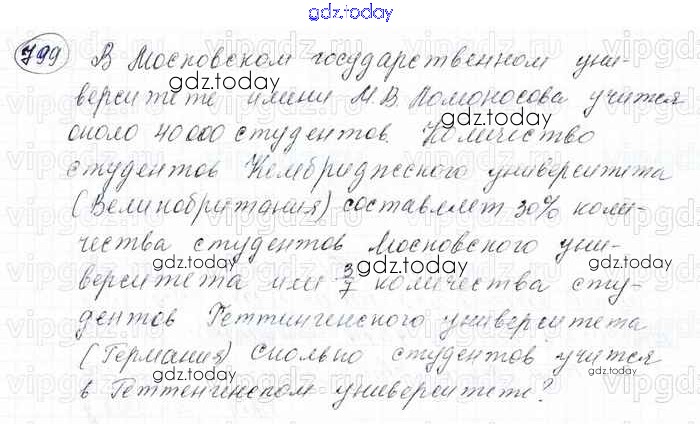 gdz.today
799 В Московском государственном уни-
верситете имени М.В. Ломоносова учится
около 40 000 студентов. Количество
студентов Кембриджского университета
(Великобритания) составляет 30% коли-
чества студентов Московского уни-
верситета или 3/7 количества сту-
дентов Геттингенского университета
(Германия) Сколько студентов учится
в Геттенгинском университете?